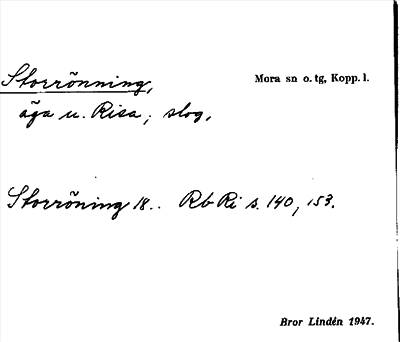 Storrönning, Mora sn o. tg, Kopp. l.
äga u. Risa; slog.
Storröning 18.. Rb Ri s. 140, 153.
Bror Lindén 1947.